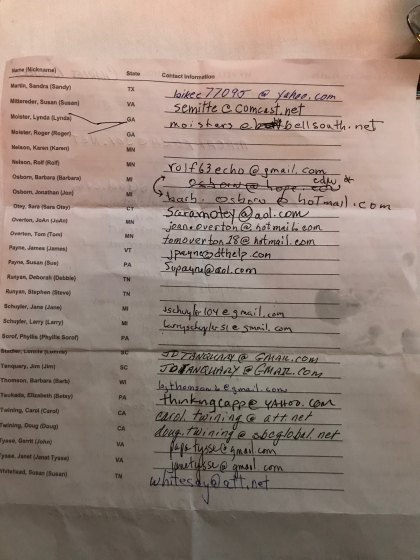 Name (Nickname) State Contact Information
Martin, Sandra (Sandy) TX bikec77095 @ yahoo.com
Mittereder, Susan (Susan) VA semitte@comcast.net
Moister, Lynda (Lynda) GA moisters@bellsouth.net
Moister, Roger (Roger) GA
Nelson, Karen (Karen) MN
Nelson, Rolf (Rolf) MN rolf63echo@gmail.com
Osborn, Barbara (Barbara) MI @ hope.edu
Osborn, Jonathan (Jon) MI barb.osborn@hotmail.com
Otey, Sara (Sara Otey) CT saraxnotey@aol.com
Overton, JoAn (JoAn) MN joan.overton@hotmail.com
Overton, Tom (Tom) MN tomoverton18@hotmail.com
Payne, James (James) VT jpayne@dthelp.com
Payne, Sue (Susan) PA supayne@aol.com
Runyan, Deborah (Debbie) TN
Runyan, Stephen (Steve) TN
Schuyler, Jane (Jane) MI jschuyler104@gmail.com
Schuyler, Larry (Larry) MI larryschuyler51@gmail.com
Sorof, Phyllis (Phyllis Sorof) PA
SC JDTANQUARY@GMAIL.com
Tanquary, Jim (Jim) SC JDTANQUARY@GMAIL.com
Thomson, Barbara (Barb) WI @gmail.com
Tsukada, Elizabeth (Betsy) PA thinkingcapp@YAHOO.com
Twining, Carol (Carol) CA carol.twining@att.net
Twining, Doug (Doug) CA doug.twining@sbcglobal.net
Tysse, Gerrit (John) VA papatysse@gmail.com
Tysse, Janet (Janet Tysse) VA janetysse@gmail.com
Whitehead, Susan (Susan) TN whitesay@att.net